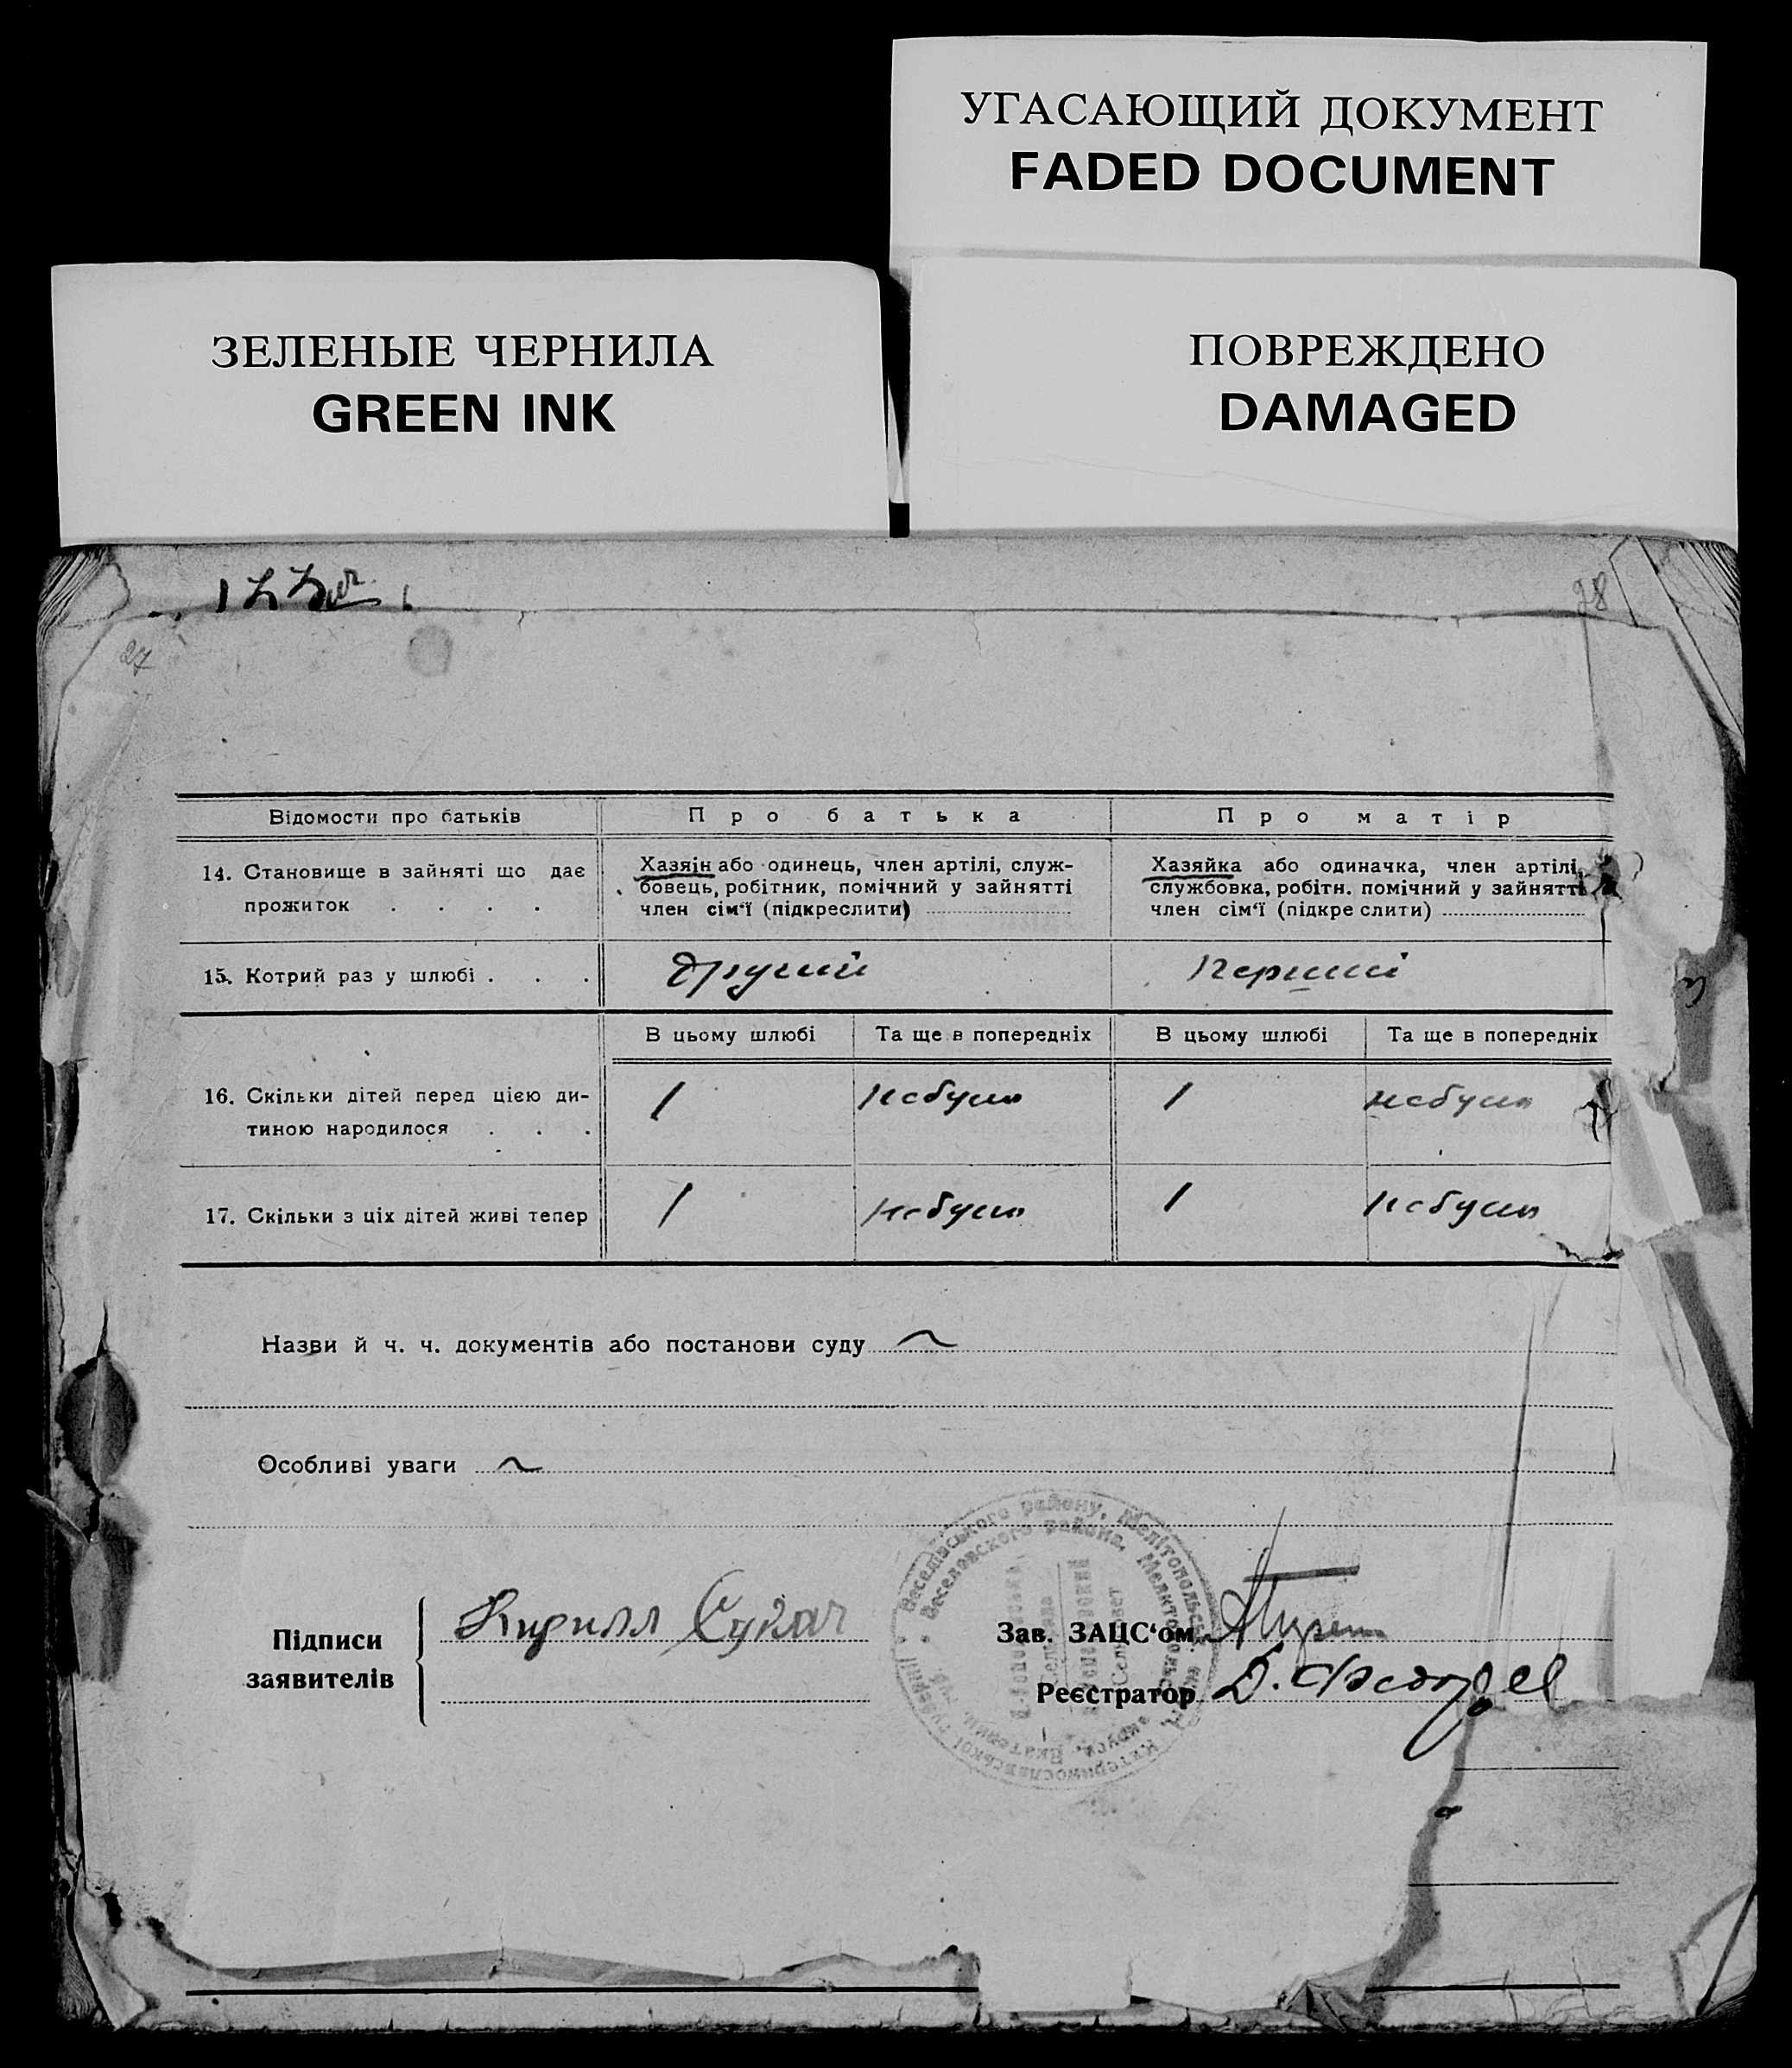 УГАСАЮЩИЙ ДОКУМЕНТ
FADED DOCUMENT
ЗЕЛЕНЫЕ ЧЕРНИЛА
GREEN INK
ПОВРЕЖДЕНО
DAMAGED
28
27
Відомости про батьків
Про батька
Про матір
14. Становище в зайняті що дає
прожиток . . . .
Хазяін або одинець, член артілі, служ-
бовець, робітник, помічний у зайнятті
член сім'ї (підкреслити)
Хазяйка або одиначка, член артілі,
службовка, робітн. помічний у зайнятті
член сім'ї (підкре слити)
15. Котрий раз у шлюбі . . .
Другий
Перший
В цьому шлюбі
Та ще в попередніх
В цьому шлюбі
Та ще в попередніх
16. Скільки дітей перед цією ди-
тиною народилося . . .
1
небуло
1
небуло
17. Скільки з ціх дітей живі тепер
1
небуло
1
небуло
Назви й ч. ч. документів або постанови суду
Особливі уваги
Веселівського району, Мелітопольської
Веселовского района, Мелитопольск
Катеринославської губерніі
Підписи
заявителів
Кирилл
Зав. ЗАЦС'ом
Реєстратор